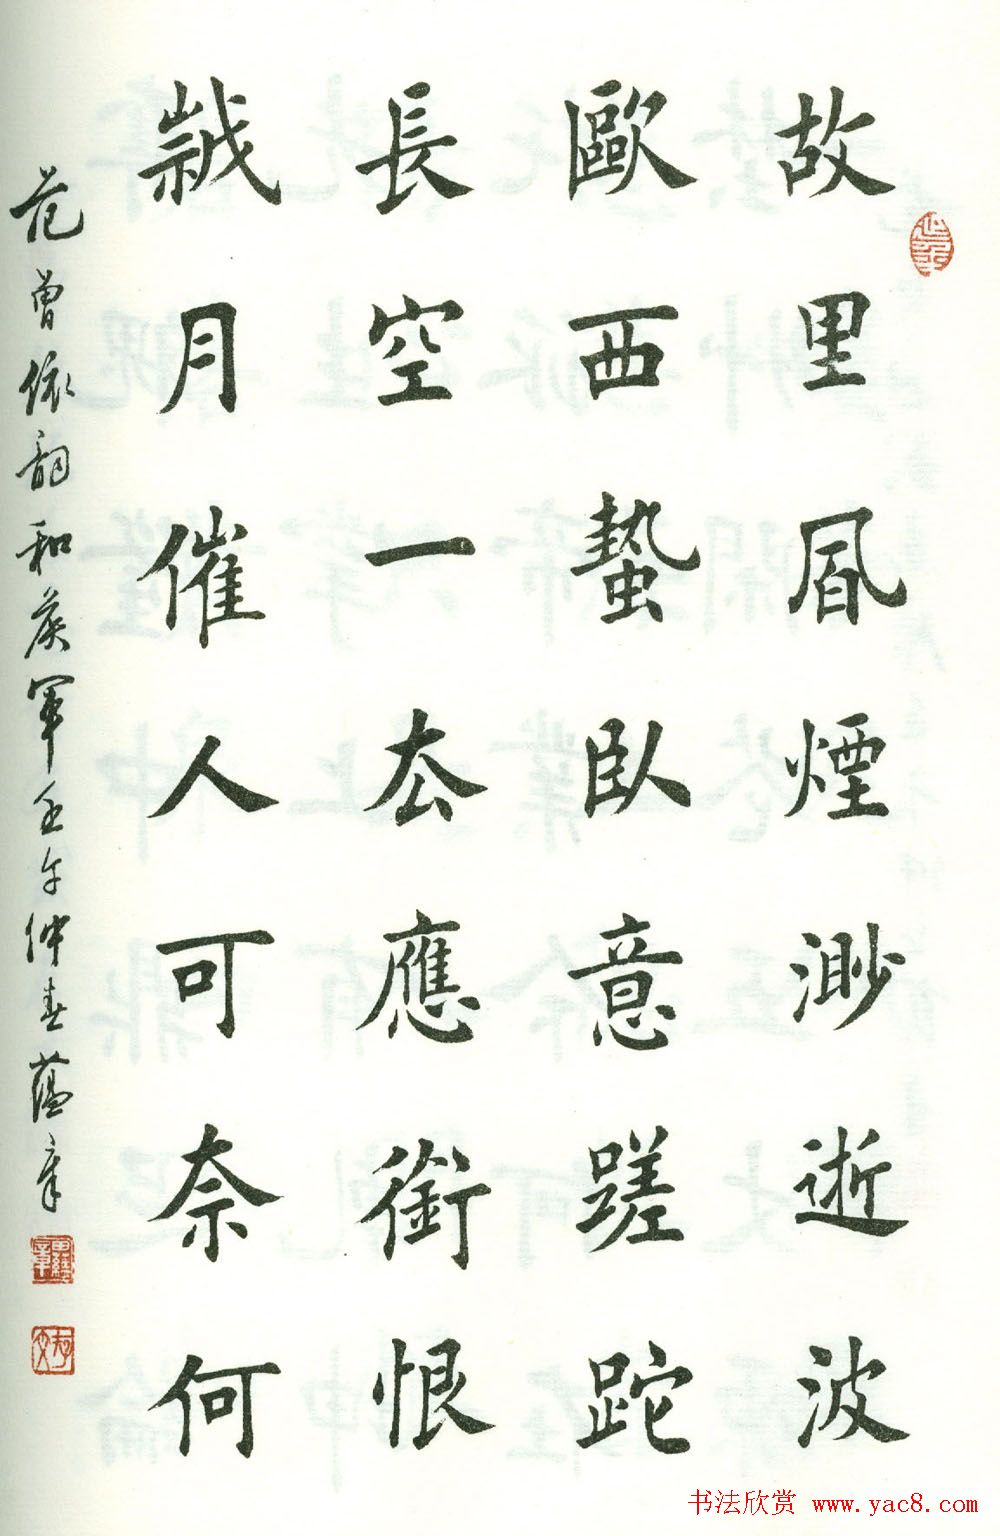 故里凬煙渺逝波
歐西蟄臥意蹉跎
長空一厺應銜恨
歲月催人可奈何
范曾依韵和軍壬午仲春蘊章
书法欣赏 www.yac8.com